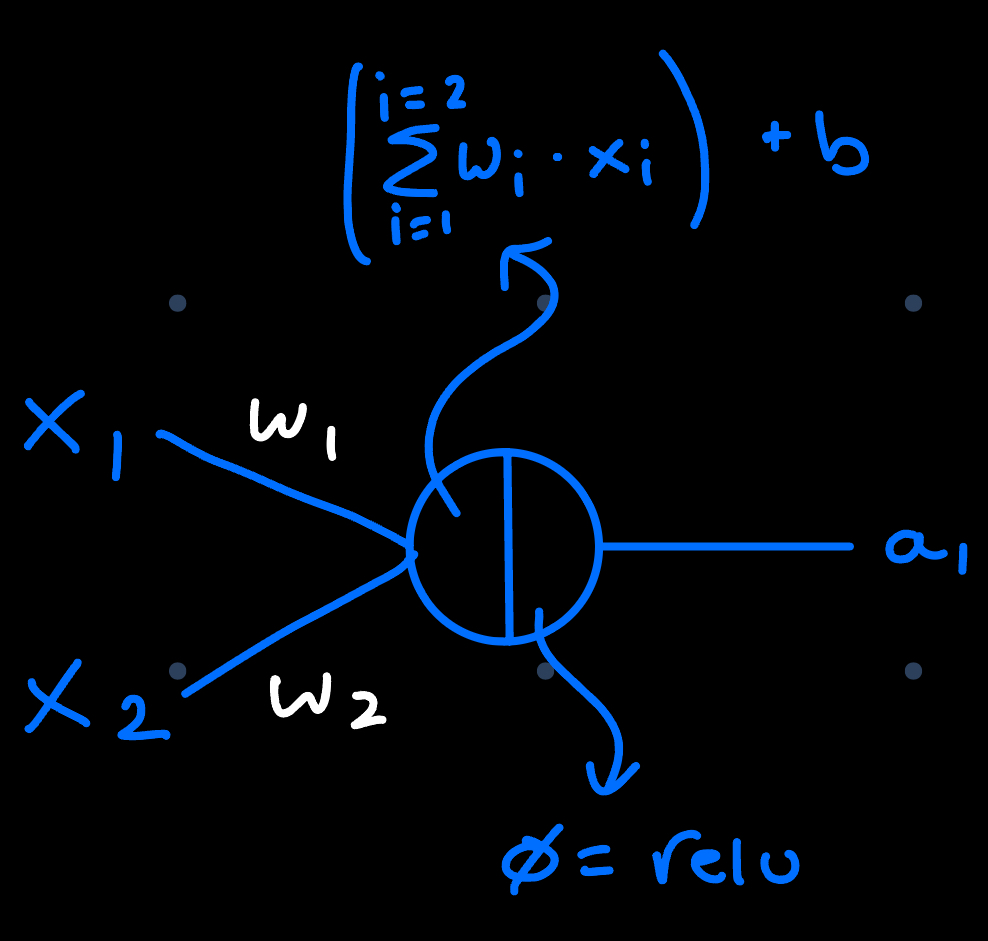 (∑_{i=1}^{i=2} w_i · x_i) + b
x₁
w₁
a₁
x₂
w₂
ø = relu